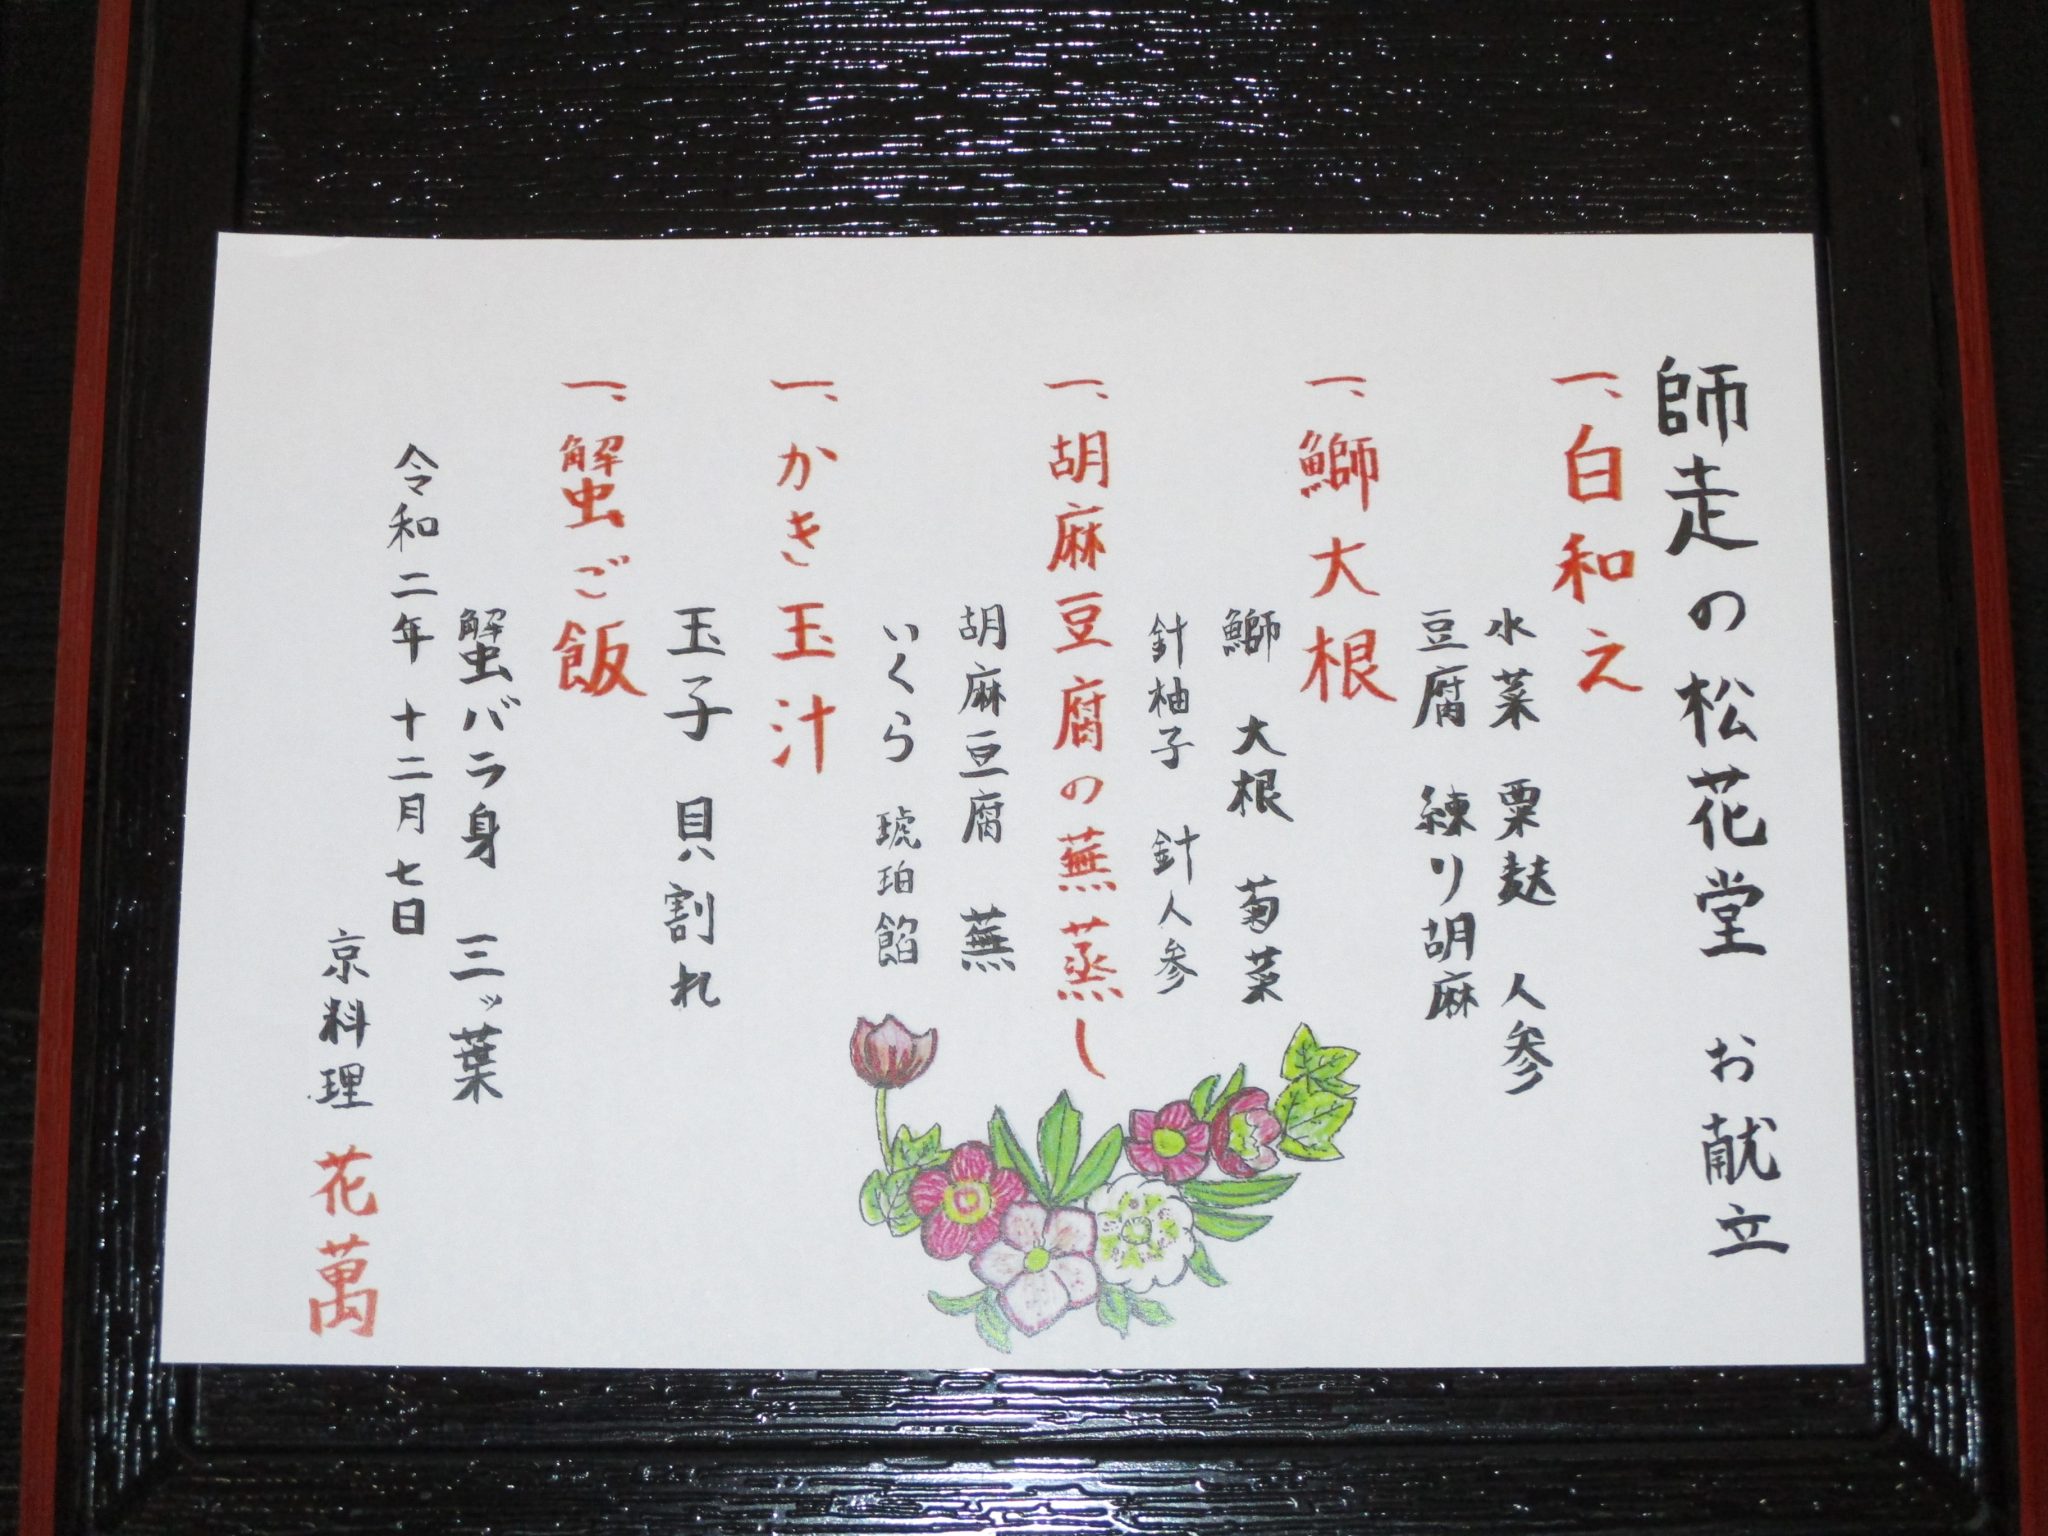 師走の松花堂 お献立
一、白和え
水菜 粟麩 人参
豆腐 練り胡麻
一、鰤大根
鰤 大根 菊菜
針柚子 針人参
一、胡麻豆腐の蕪蒸し
胡麻豆腐 蕪
いくら 琥珀餡
一、かき玉汁
玉子 貝割れ
一、蟹ご飯
蟹バラ身 三ッ葉
令和二年 十二月七日
京料理 花萬